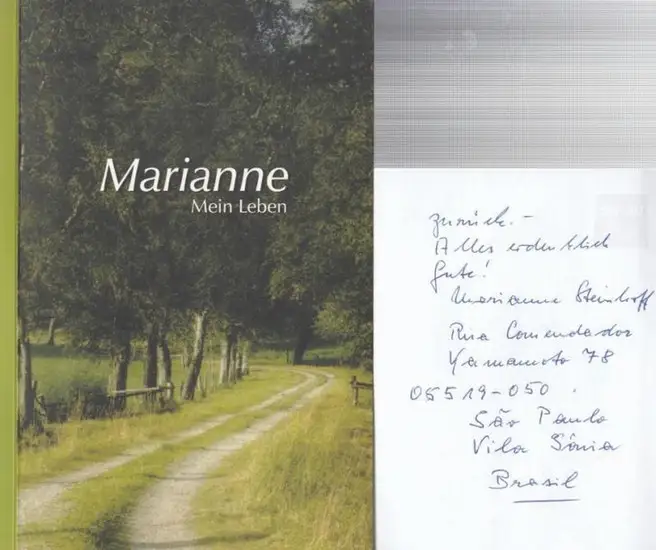 Marianne
Mein Leben
zurück. –
Alles erdenklich
Gute!
Marianne Steinhoff
Rua Comendador
Yamamoto 78
05519-050.
São Paulo
Vila Sônia
Brasil